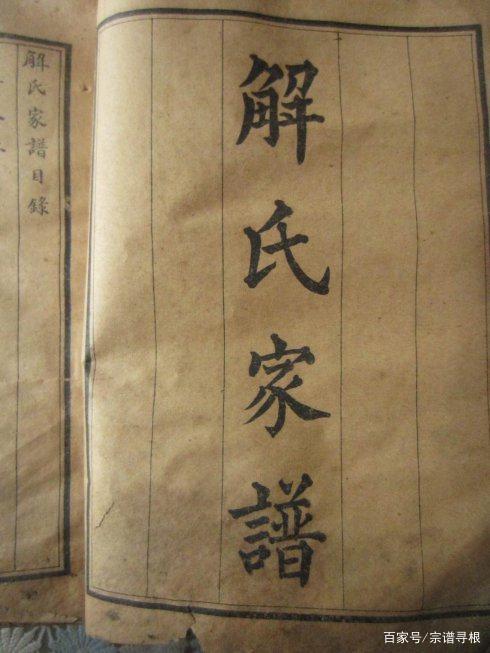 解氏家譜
解氏家譜目錄
百家号/宗谱寻根